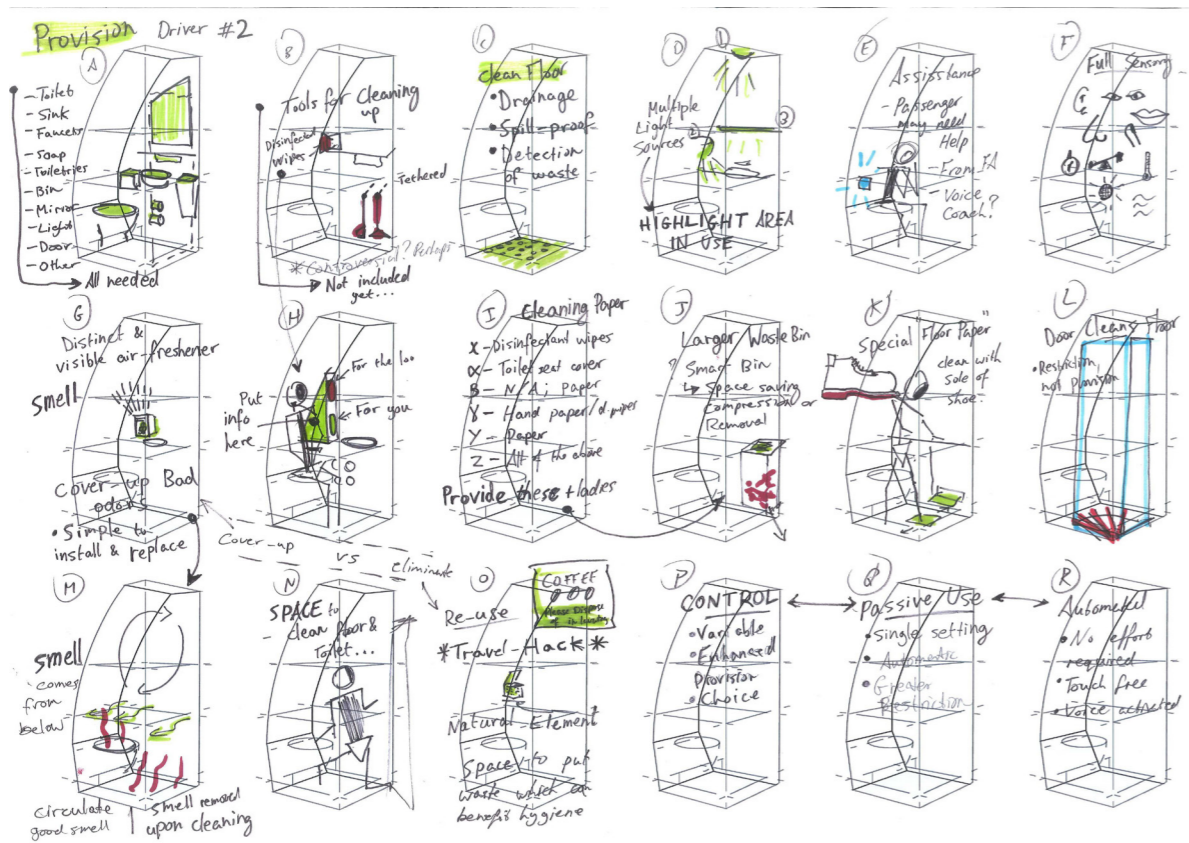 Provision Driver #2
A
- Toilet
- Sink
- Faucets
- Soap
- Toiletries
- Bin
- Mirror
- Light
- Door
- Other
All needed
B
Tools for Cleaning
up
Disinfectant
wipes
Tethered
* Controversial? Perhaps
Not included
yet...
C
Clean Floor
• Drainage
• Spill-proof
• Detection
of waste
D
1
Multiple
Light
Sources
2
3
HIGHLIGHT AREA
IN USE
E
Assisstance
- Passenger
may need
Help
- From FA
- Voice
Coach?
F
Full Sensory
G
Distinct &
visible air-freshener
smell
Cover-up Bad
odors
• Simple to
install & replace
H
For the loo
For you
Put
info
here
Cover-up vs eliminate
I
Cleaning Paper
X - Disinfectant wipes
α - Toilet seat cover
B - N/A; paper
γ - Hand paper/
Y - Paper
Z - All of the above
Provide these + ladies
J
Larger Waste Bin
? Smart Bin
↳ Space saving
Compression or
Removal
K
"Special Floor Paper"
clean with
sole of
shoe.
L
Door Cleans Floor
• Restriction,
not provision
M
smell
comes
from
below
circulate
good smell
smell removed
upon cleaning
N
SPACE to
- clean floor &
Toilet...
O
COFFEE
Please Dispose
of in
Re-use
*Travel-Hack*
Natural-Element
Space to put
waste which can
benefit hygiene
P
CONTROL
• Variable
• Enhanced
Provision
• Choice
Q
Passive Use
• Single setting
• Automatic
• Greater
Restriction
R
Automated
• No effort
required
• Touch free
• Voice activated